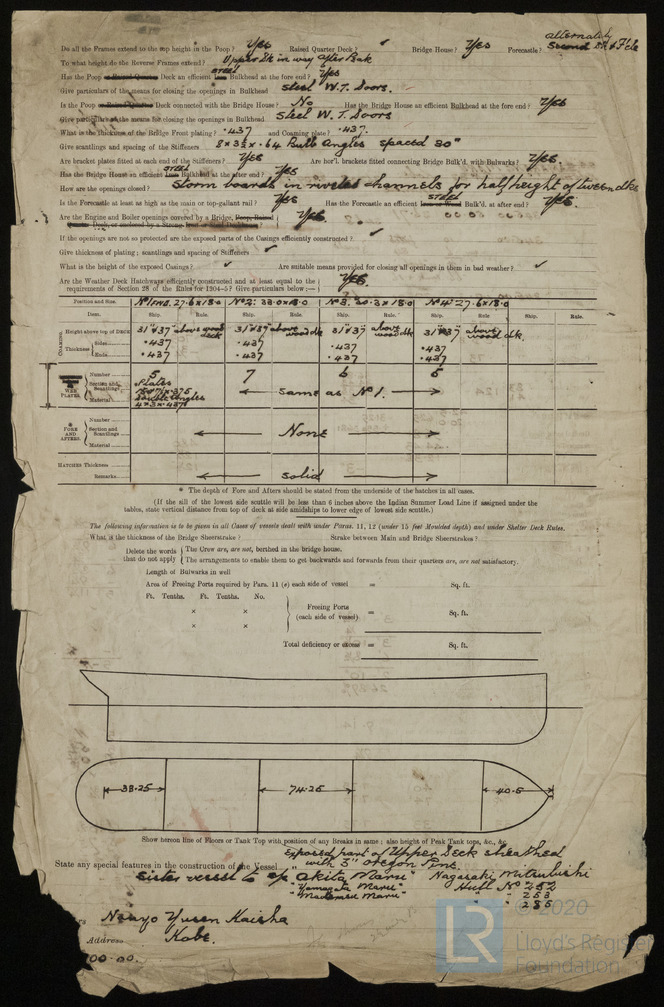 Do all the Frames extend to the top height in the Poop? Yes Raised Quarter Deck? ✓ Bridge House? Yes Forecastle? alternately Second Dk & F'cle
To what height do the Reverse Frames extend? Upper Dk in way after Peak
Has the Poop or Raised Quarter Deck an efficient Iron STEEL Bulkhead at the fore end? Yes
Give particulars of the means for closing the openings in Bulkhead Steel W.T. Doors.
Is the Poop or Raised Quarter Deck connected with the Bridge House? No Has the Bridge House an efficient Bulkhead at the fore end? Yes
Give particulars of the means for closing the openings in Bulkhead Steel W.T. Doors
What is the thickness of the Bridge Front plating? .437 and Coaming plate? .437.
Give scantlings and spacing of the Stiffeners 8 x 3½ x .64 Bulb Angles spaced 30"
Are bracket plates fitted at each end of the Stiffeners? Yes Are hor'l. brackets fitted connecting Bridge Bulk'd. with Bulwarks? Yes.
Has the Bridge House an efficient Iron STEEL Bulkhead at the after end? Yes
How are the openings closed? Storm boards in riveted channels for half height of tween dks
Is the Forecastle at least as high as the main or top-gallant rail? Yes Has the Forecastle an efficient Iron or Wood STEEL Bulk'd. at after end? Yes.
Are the Engine and Boiler openings covered by a Bridge, Poop, Raised
Quarter Deck, or enclosed by a Strong Yes.
If the openings are not so protected are the exposed parts of the Casings efficiently constructed? ✓
Give thickness of plating; scantlings and spacing of Stiffeners ✓
What is the height of the exposed Casings? ✓ Are suitable means provided for closing all openings in them in bad weather? ✓
Are the Weather Deck Hatchways efficiently constructed and at least equal to the
requirements of Section 28 of the Rules for 1904-5? Give particulars below :— Yes.
Position and Size. Nº 1 Fwd. 27.6 x 18.0 Nº 2: 33.0 x 18.0 Nº 3. 30.3 x 18.0 Nº 4: 27.6 x 18.0
Item. Ship. Rule. Ship. Rule. Ship. Rule. Ship. Rule. Ship. Rule.
COAMING Height above top of Deck 31" & 37" above wood deck 31" & 37" above wood dk 31" & 37" above wood dk 31" & 37" above wood dk.
Thickness Sides .437 .437 .437 .437
Ends .437 .437 .437 .437
WEB PLATES. Number 5 7 6 5
Section and Scantlings Plates
Material Double Angles ← Same as Nº 1. →
4 x 3 x .437
* FORE AND AFTERS. Number
Section and Scantlings ← None →
Material
HATCHES Thickness
Remarks ← Solid →
* The depth of Fore and Afters should be stated from the underside of the hatches in all cases.
(If the sill of the lowest side scuttle will be less than 6 inches above the Indian Summer Load Line if assigned under the
tables, state vertical distance from top of deck at side amidships to lower edge of lowest side scuttle.)
The following information is to be given in all Cases of vessels dealt with under Paras. 11, 12 (under 15 feet Moulded depth) and under Shelter Deck Rules.
What is the thickness of the Bridge Sheerstrake? Strake between Main and Bridge Sheerstrakes?
Delete the words that do not apply The Crew are, are not, berthed in the bridge house.
The arrangements to enable them to get backwards and forwards from their quarters are, are not satisfactory.
Length of Bulwarks in well
Area of Freeing Ports required by Para. 11 (e) each side of vessel = Sq. ft.
Ft. Tenths. Ft. Tenths. No.
× × Freeing Ports (each side of vessel) = Sq. ft.
× ×
Total deficiency or excess = Sq. ft.
38.25 74.25 40.5
Show hereon line of Floors or Tank Top with position of any Breaks in same; also height of Peak Tank tops, &c., &c.
Exposed part of Upper Deck sheathed
State any special features in the construction of the Vessel with 3" Oregon Pine.
Sister vessel to s/s "Akita Maru" Nagasaki Mitsubishi
"Yamagata Maru" Hull Nº 252
" " 253
" " 285
Kaisha
Address Kobe.
00-00.
LR © 2020
Lloyd's Register
Foundation